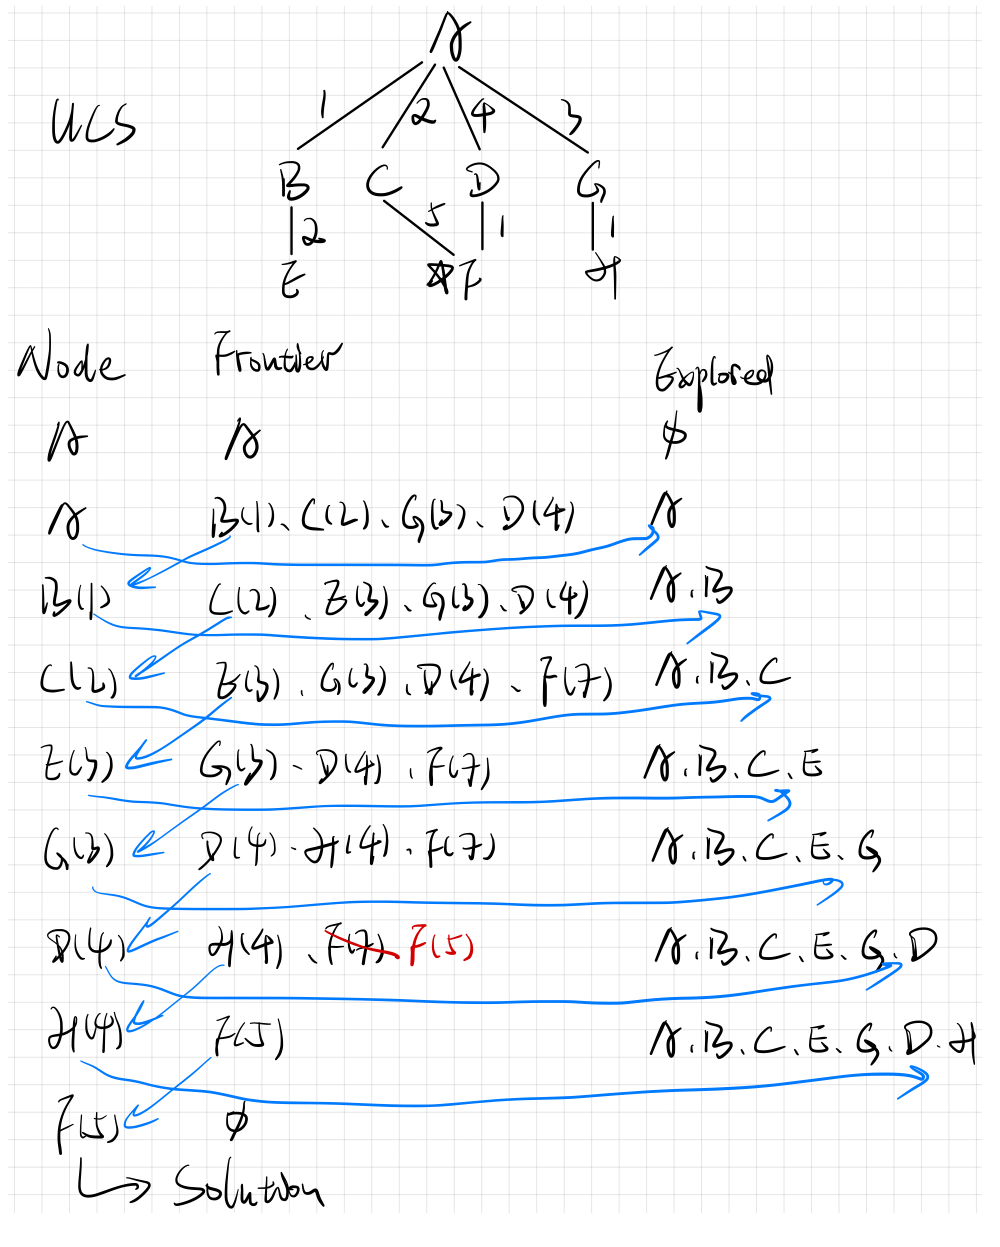 A
UCS
1 2 4 3
B C D G
2 5 1 1
E ☆F H
Node Frontier Explored
A A ϕ
A B(1)、C(2)、G(3)、D(4) A
B(1) C(2)、E(3)、G(3)、D(4) A.B
C(2) E(3)、G(3)、D(4)、F(7) A.B.C
E(3) G(3)、D(4)、F(7) A.B.C.E
G(3) D(4)、H(4)、F(7) A.B.C.E.G
D(4) H(4)、F(7) F(5) A.B.C.E.G.D
H(4) F(5) A.B.C.E.G.D.H
F(5) ϕ
Solution